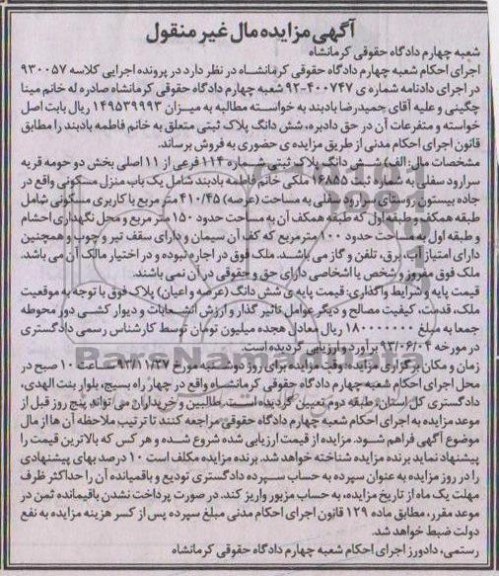 آگهی مزایده مال غیر منقول
شعبه چهارم دادگاه حقوقی کرمانشاه
اجرای احکام شعبه چهارم دادگاه حقوقی کرمانشاه در نظر دارد در پرونده اجرایی کلاسه ۹۳۰۰۵۷
در اجرای دادنامه شماره ی ۴۰۰۷۴۷-۹۲ شعبه چهارم دادگاه حقوقی کرمانشاه صادره له خانم مینا
چگینی و علیه آقای حمیدرضا بادبند به خواسته مطالبه به میزان ۱۴۹۵۳۹۹۹۳ ریال بابت اصل
خواسته و متفرعات آن در حق دادبره، شش دانگ پلاک ثبتی متعلق به خانم فاطمه بادبند را مطابق
قانون اجرای احکام مدنی از طریق مزایده ی حضوری به فروش برساند.
مشخصات مال: الف) شش دانگ پلاک ثبتی شماره ۱۱۴ فرعی از ۱۱ اصلی بخش دو حومه قریه
سرارود سفلی به شماره ثبت ۱۶۸۵۵ ملکی خانم فاطمه بادبند شامل یک باب منزل مسکونی واقع در
جاده بیستون روستای سرارود سفلی به مساحت (عرصه) ۴۱۰/۴۵ متر مربع با کاربری مسکونی شامل
طبقه همکف و طبقه اول که طبقه همکف آن به مساحت حدود ۱۵۰ متر مربع و محل نگهداری احشام
و طبقه اول به مساحت حدود ۱۰۰ مترمربع که کف آن سیمان و دارای سقف تیر و چوب و همچنین
دارای امتیاز آب، برق، تلفن و گاز می باشد. ملک فوق در اجاره نبوده و در اختیار مالک آن می باشد.
ملک فوق مفروز و شخص یا اشخاصی دارای حق و حقوقی در آن نمی باشند.
قیمت پایه و شرایط واگذاری: قیمت پایه ی شش دانگ (عرصه و اعیان) پلاک فوق با توجه به موقعیت
ملک، قدمت، کیفیت مصالح و دیگر عوامل تاثیر گذار و ارزش انشعابات و دیوار کشی دور محوطه
جمعا به مبلغ ۱۸۰۰۰۰۰۰۰ ریال معادل هجده میلیون تومان توسط کارشناس رسمی دادگستری
در مورخه ۹۳/۰۶/۰۴ برآورد و ارزیابی گردیده است.
زمان و مکان برگزاری مزایده: وقت مزایده برای روز دوشنبه مورخ ۹۳/۱۱/۲۷ ساعت ۱۰ صبح در
محل اجرای احکام شعبه چهارم دادگاه حقوقی کرمانشاه واقع در چهار راه بسیج، بلوار بنت الهدی،
دادگستری کل استان، طبقه دوم تعیین گردیده است. طالبین و خریداران می تواند پنج روز قبل از
موعد مزایده به اجرای احکام شعبه چهارم دادگاه حقوقی مراجعه کنند تا ترتیب ملاحظه آن ها از مال
موضوع آگهی فراهم شود. مزایده از قیمت ارزیابی شده شروع شده و هر کس که بالاترین قیمت را
پیشنهاد نماید برنده مزایده شناخته خواهد شد. برنده مزایده مکلف است ۱۰ درصد بهای پیشنهادی
را در روز مزایده به عنوان سپرده به حساب سپرده دادگستری تودیع و باقیمانده آن را حداکثر ظرف
مهلت یک ماه از تاریخ مزایده، به حساب مزبور واریز کند. در صورت پرداخت نشدن باقیمانده ثمن در
موعد مقرر، مطابق ماده ۱۲۹ قانون اجرای احکام مدنی مبلغ سپرده پس از کسر هزینه مزایده به نفع
دولت ضبط خواهد شد.
رستمی، دادورز اجرای احکام شعبه چهارم دادگاه حقوقی کرمانشاه